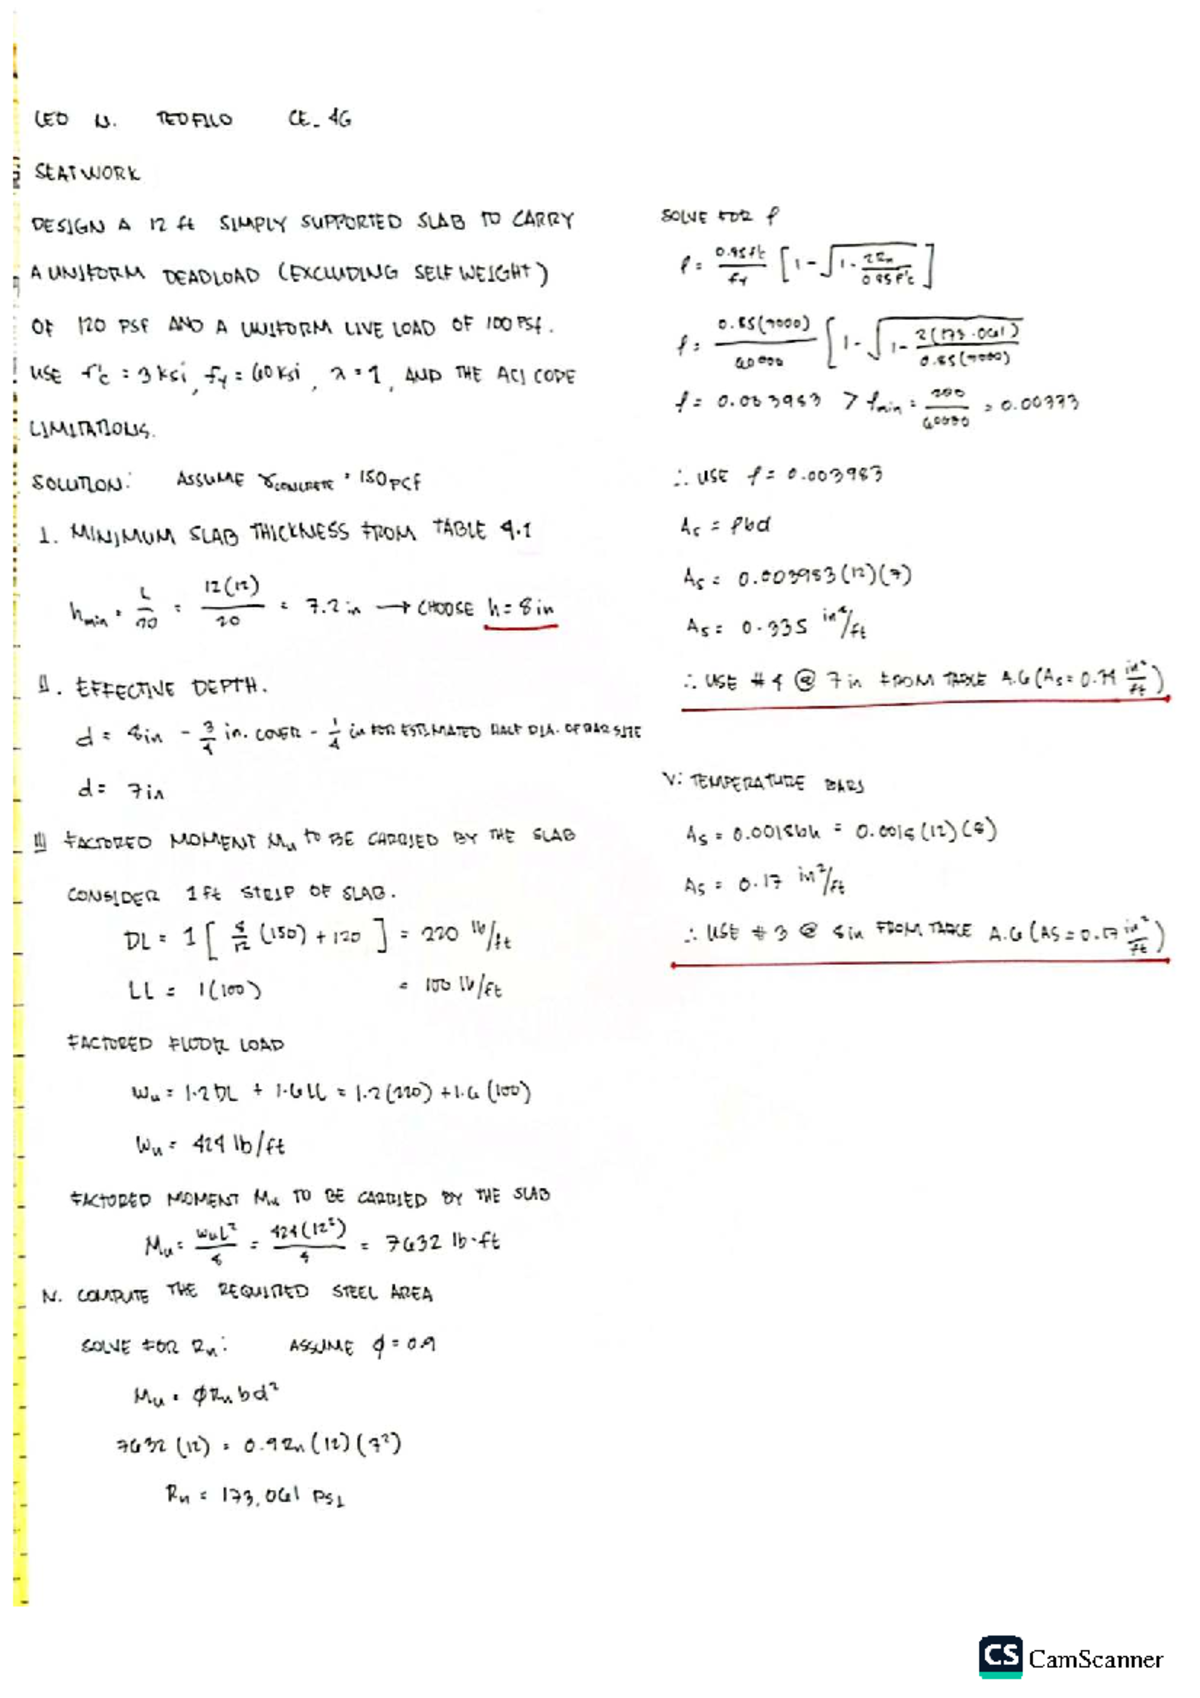 LEO N. TEOFILO CE-4G
SEATWORK
DESIGN A 12 ft SIMPLY SUPPORTED SLAB TO CARRY
A UNIFORM DEADLOAD (EXCLUDING SELF WEIGHT)
OF 120 PSF AND A UNIFORM LIVE LOAD OF 100 PSf.
USE f'c = 3 ksi, fy = 60 ksi, λ = 1, AND THE ACI CODE
LIMITATIONS.
SOLUTION: ASSUME γCONCRETE = 150 PCF
I. MINIMUM SLAB THICKNESS FROM TABLE 4.1
hmin = L/20 = 12(12)/20 = 7.2 in → CHOOSE h = 8 in
II. EFFECTIVE DEPTH.
d = 8in - 3/4 in. COVER - 1/4 in FOR ESTIMATED HALF DIA. OF BAR SIZE
d = 7in
III FACTORED MOMENT Mu TO BE CARRIED BY THE SLAB
CONSIDER 1 ft STRIP OF SLAB.
DL = 1 [ 8/12 (150) + 120 ] = 220 lb/ft
LL = 1(100) = 100 lb/ft
FACTORED FLOOR LOAD
Wu = 1.2 DL + 1.6 LL = 1.2 (220) + 1.6 (100)
Wu = 424 lb/ft
FACTORED MOMENT Mu TO BE CARRIED BY THE SLAB
Mu = WuL²/8 = 424(12²)/8 = 7632 lb·ft
IV. COMPUTE THE REQUIRED STEEL AREA
SOLVE FOR Rn: ASSUME φ = 0.9
Mu = φRnbd²
7632 (12) = 0.9 Rn (12)(7²)
Rn = 173.061 PSI
SOLVE FOR ρ
ρ = 0.85f'c/fy [1 - √(1 - 2Rn/0.85f'c)]
ρ = 0.85(3000)/60000 [1 - √(1 - 2(173.061)/0.85(3000))]
ρ = 0.003983 > ρmin = 200/60000 = 0.00333
∴ USE ρ = 0.003983
As = ρbd
As = 0.003983 (12)(7)
As = 0.335 in²/ft
∴ USE #4 @ 7 in FROM TABLE A.6 (As = 0.34 in²/ft)
V: TEMPERATURE BARS
As = 0.0018bh = 0.0018 (12)(8)
As = 0.17 in²/ft
∴ USE #3 @ 8in FROM TABLE A.6 (AS = 0.17 in²/ft)
CS CamScanner